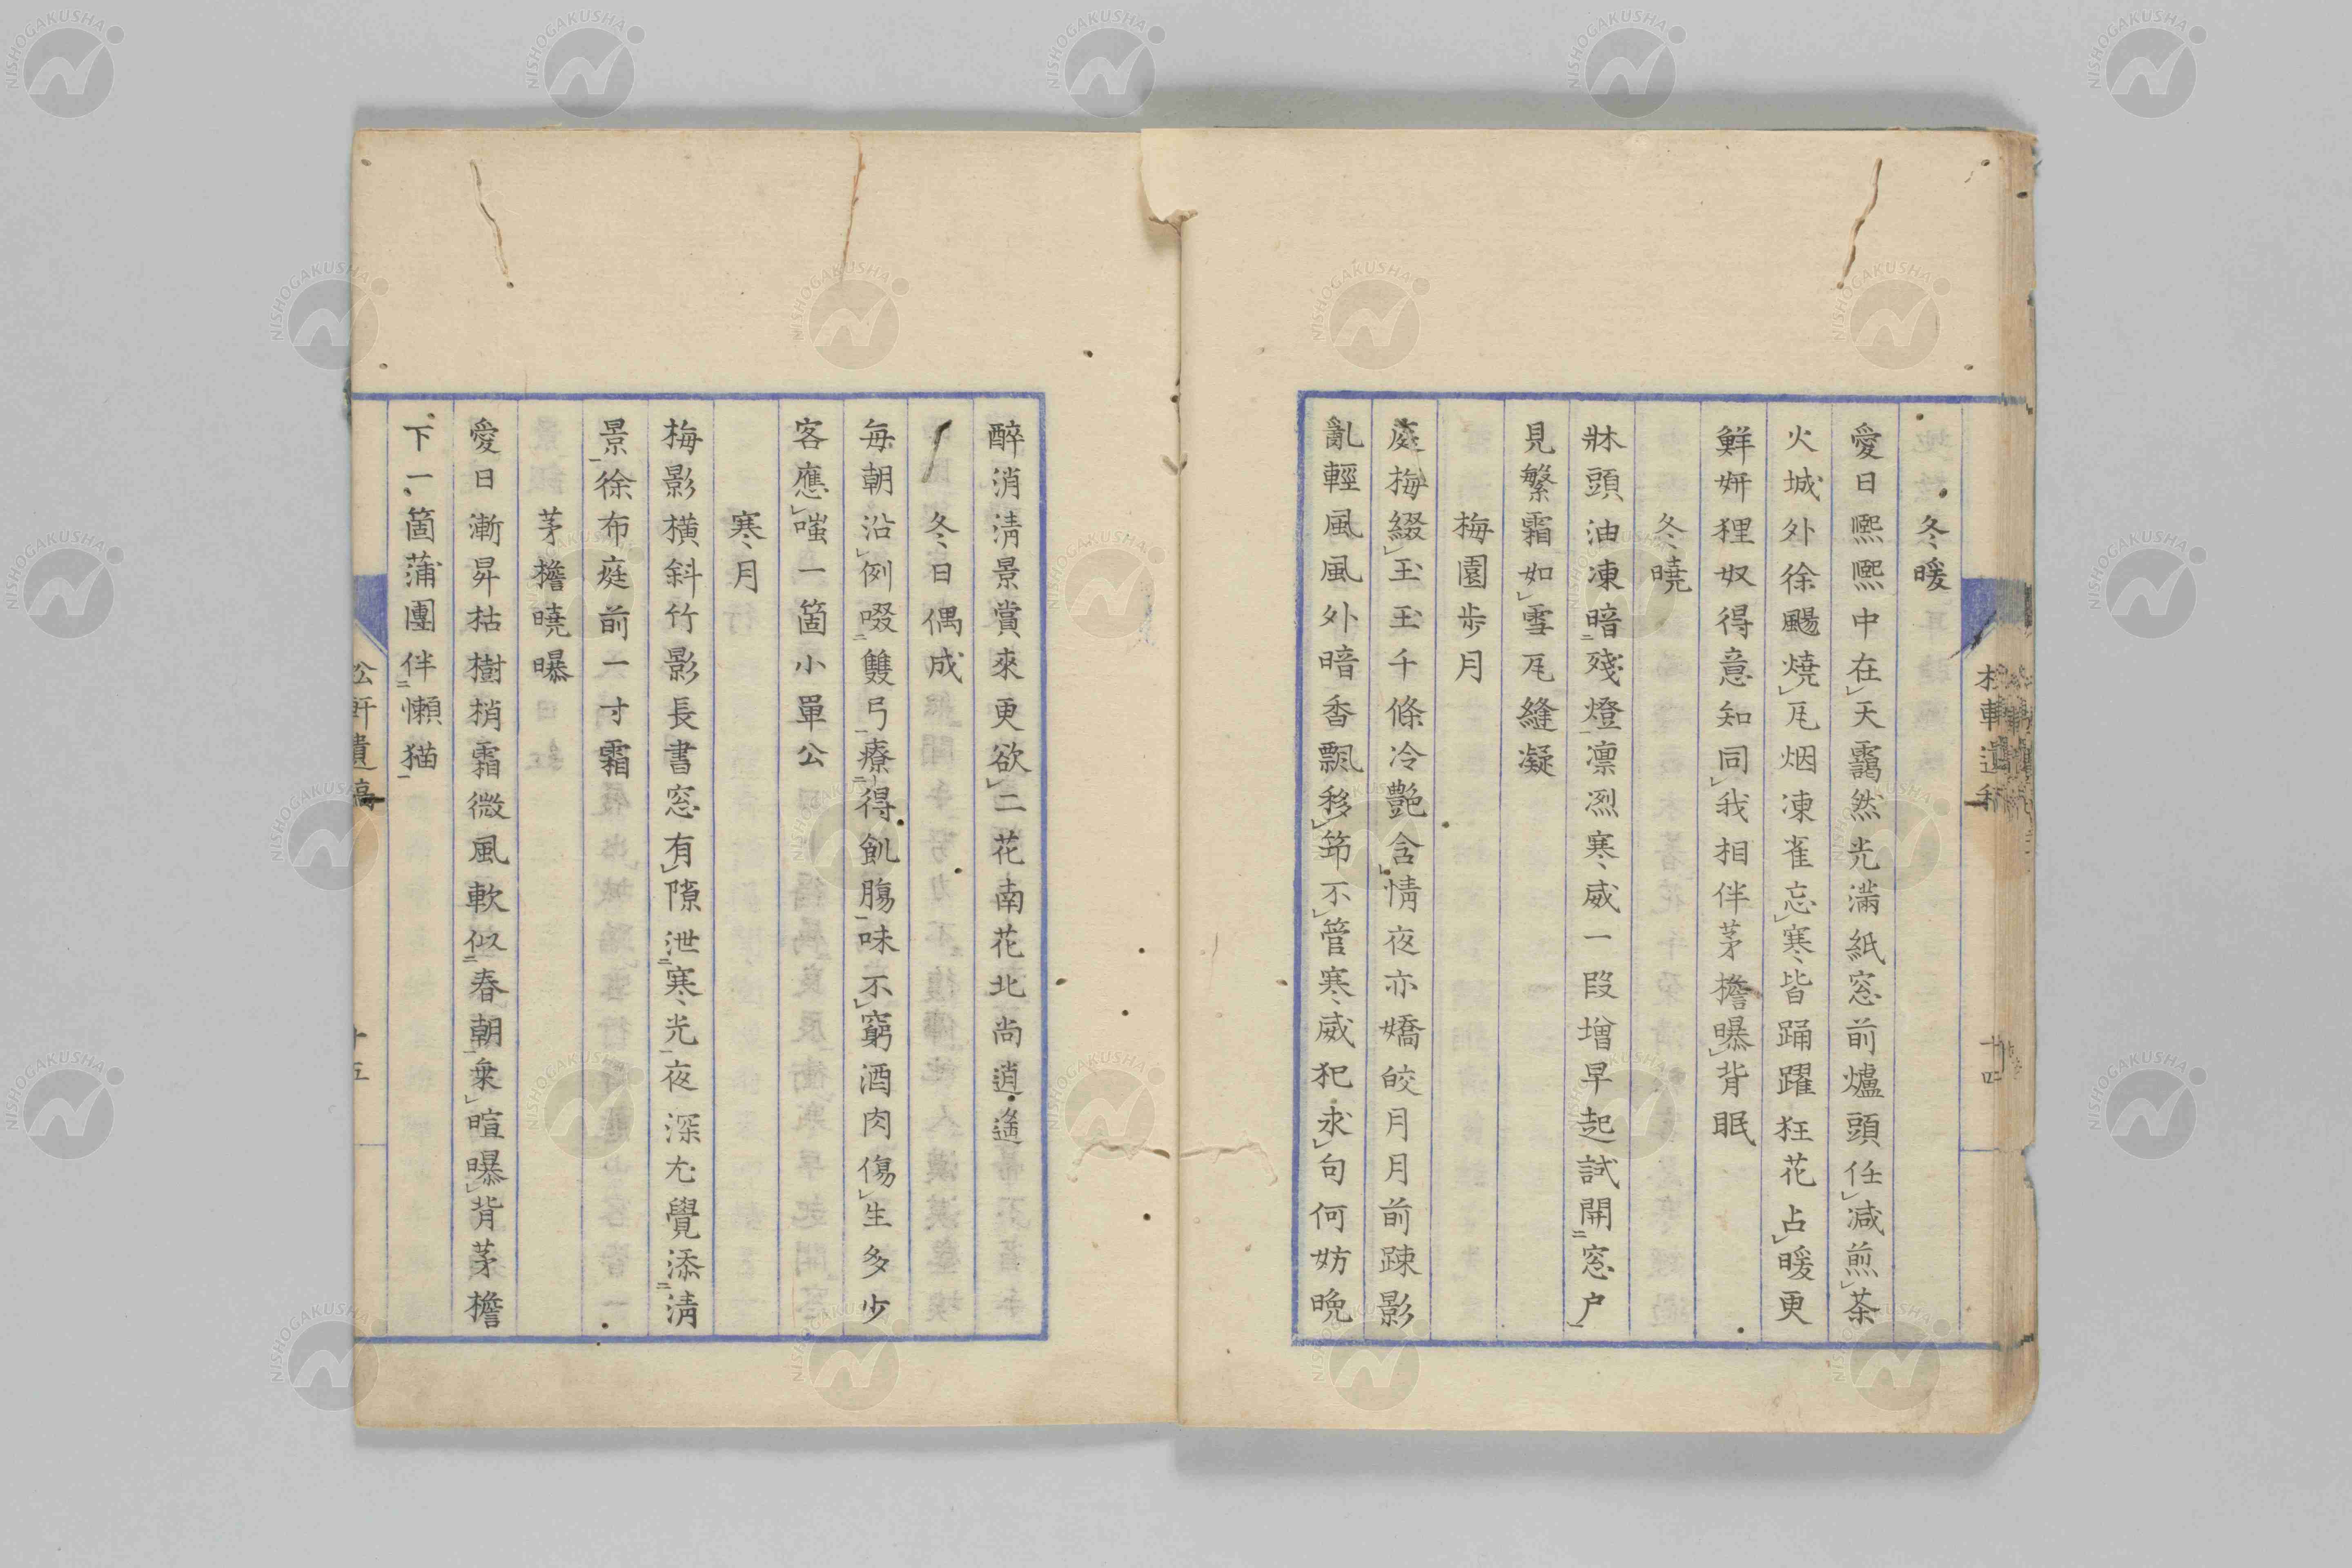 冬暖
愛日熙熙中在天靄然光滿紙窓前爐頭任減煎茶
火城外徐颺燒瓦烟凍雀忘寒皆踊躍狂花占暖更
鮮妍狸奴得意知同我相伴茅檐曝背眠
冬曉
牀頭油凍暗殘燈凛冽寒威一段增早起試開窓户
見繁霜如雪瓦縫凝
梅園步月
庭梅綴玉玉千條冷艷含情夜亦嬌皎月月前踈影
亂輕風風外暗香飄移筇不管寒威犯求句何妨晩
十四
醉消淸景賞來更欲二花南花北尚逍遙
冬日偶成
每朝沿例啜雙弓療得飢腸味不窮酒肉傷生多少
客應嗤一箇小單公
寒月
梅影橫斜竹影長書窓有隙泄寒光夜深尤覺添淸
景徐布庭前一寸霜
茅檐曉曝
愛日漸昇枯樹梢霜微風軟似春朝乗暄曝背茅檐
下一箇蒲團伴懶猫
松軒遺稿
十五
NISHOGAKUSHA